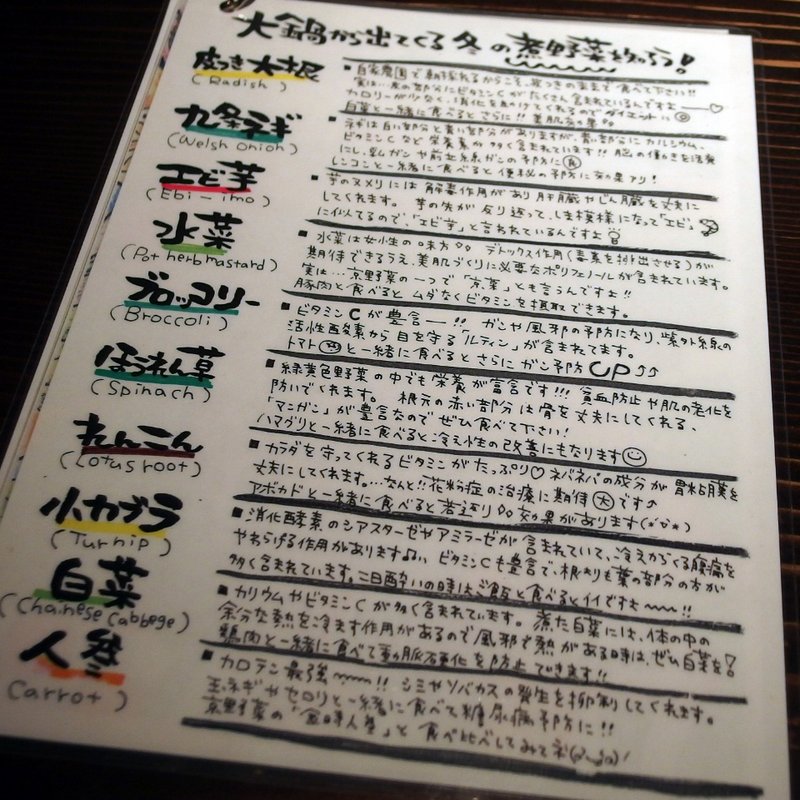 大鍋から出てくる冬の煮野菜たち!
皮つき大根
(Radish)
■自家農園で朝採れるからこそ、皮つきのままで食べて下さい!!
実は…皮の部分にビタミンCがたくさん含まれているんですよ
カロリーが少なく、消化を助けてくれるのでダイエットに
白菜と一緒に食べるとさらに!! 美肌効果
九条ネギ
(Welsh onion)
■ネギは白い部分と青い部分がありますが、青い部分にカルシウム、
ビタミンCなど栄養素が多く含まれています!! 脳の働きを活発
にし、乳ガンや前立腺ガンの予防に
レンコンと一緒に食べると便秘の予防に効果アリ!
エビ芋
(Ebi-imo)
■芋のヌメリには解毒作用があり肝臓やじん臓を丈夫に
してくれます。芋の先が反り返って、しま模様になって「エビ」
に似てるので、「エビ芋」と言われているんですよ
水菜
(Pot herb mastard)
■水菜は女性の味方 デトックス作用(毒素を排出させる)が
期待できるうえ、美肌づくりに必要なポリフェノールが含まれています。
実は…京野菜の一つで「京菜」とも言うんですよ!!
豚肉と食べるとムダなくビタミンを摂取できます。
ブロッコリー
(Broccoli)
■ビタミンCが豊富ー!! ガンや風邪の予防になり、紫外線の
活性酸素から目を守る「ルティン」が含まれてます。
トマトと一緒に食べるとさらにガン予防UP↑↑
ほうれん草
(Spinach)
■緑黄色野菜の中でも栄養が富富です!!! 貧血防止や肌の老化を
防いでくれます。 根元の赤い部分は骨を丈夫にしてくれる、
「マンガン」が豊富なのでぜひ食べて下さい!
ハマグリと一緒に食べると冷え性の改善にもなります
れんこん
(Lotus root)
■カラダを守ってくれるビタミンがたっぷり♡ネバネバの成分が胃粘膜を
丈夫にしてくれます。…なんと!!花粉症の治療に期待大です♪
アボカドと一緒に食べると若返り効果があります(*^o^*)
小カブラ
(Turnip)
■消化酵素のジアスターゼやアミラーゼが含まれていて、冷えからくる腹痛を
やわらげる作用があります♫。ビタミンCも豊富で、根よりも葉の部分の方が
多く含まれています。二日酔いの時はご飯と食べるとイイですよ〜〜!!
白菜
(Chainese Cabbege)
■カリウムやビタミンCが多く含まれています。煮た白菜には、体の中の
余分な熱を冷ます作用があるので風邪で熱がある時は、ぜひ白菜を!
鶏肉と一緒に食べて動脈石硬化を防止できます!!
人参
(Carrot)
■カロテン最強〜〜!! シミやソバカスの発生を抑制してくれます。
玉ネギやセロリと一緒に食べて糖尿病予防に!!
京野菜の「金時人参」と食べ比べしてみてネ